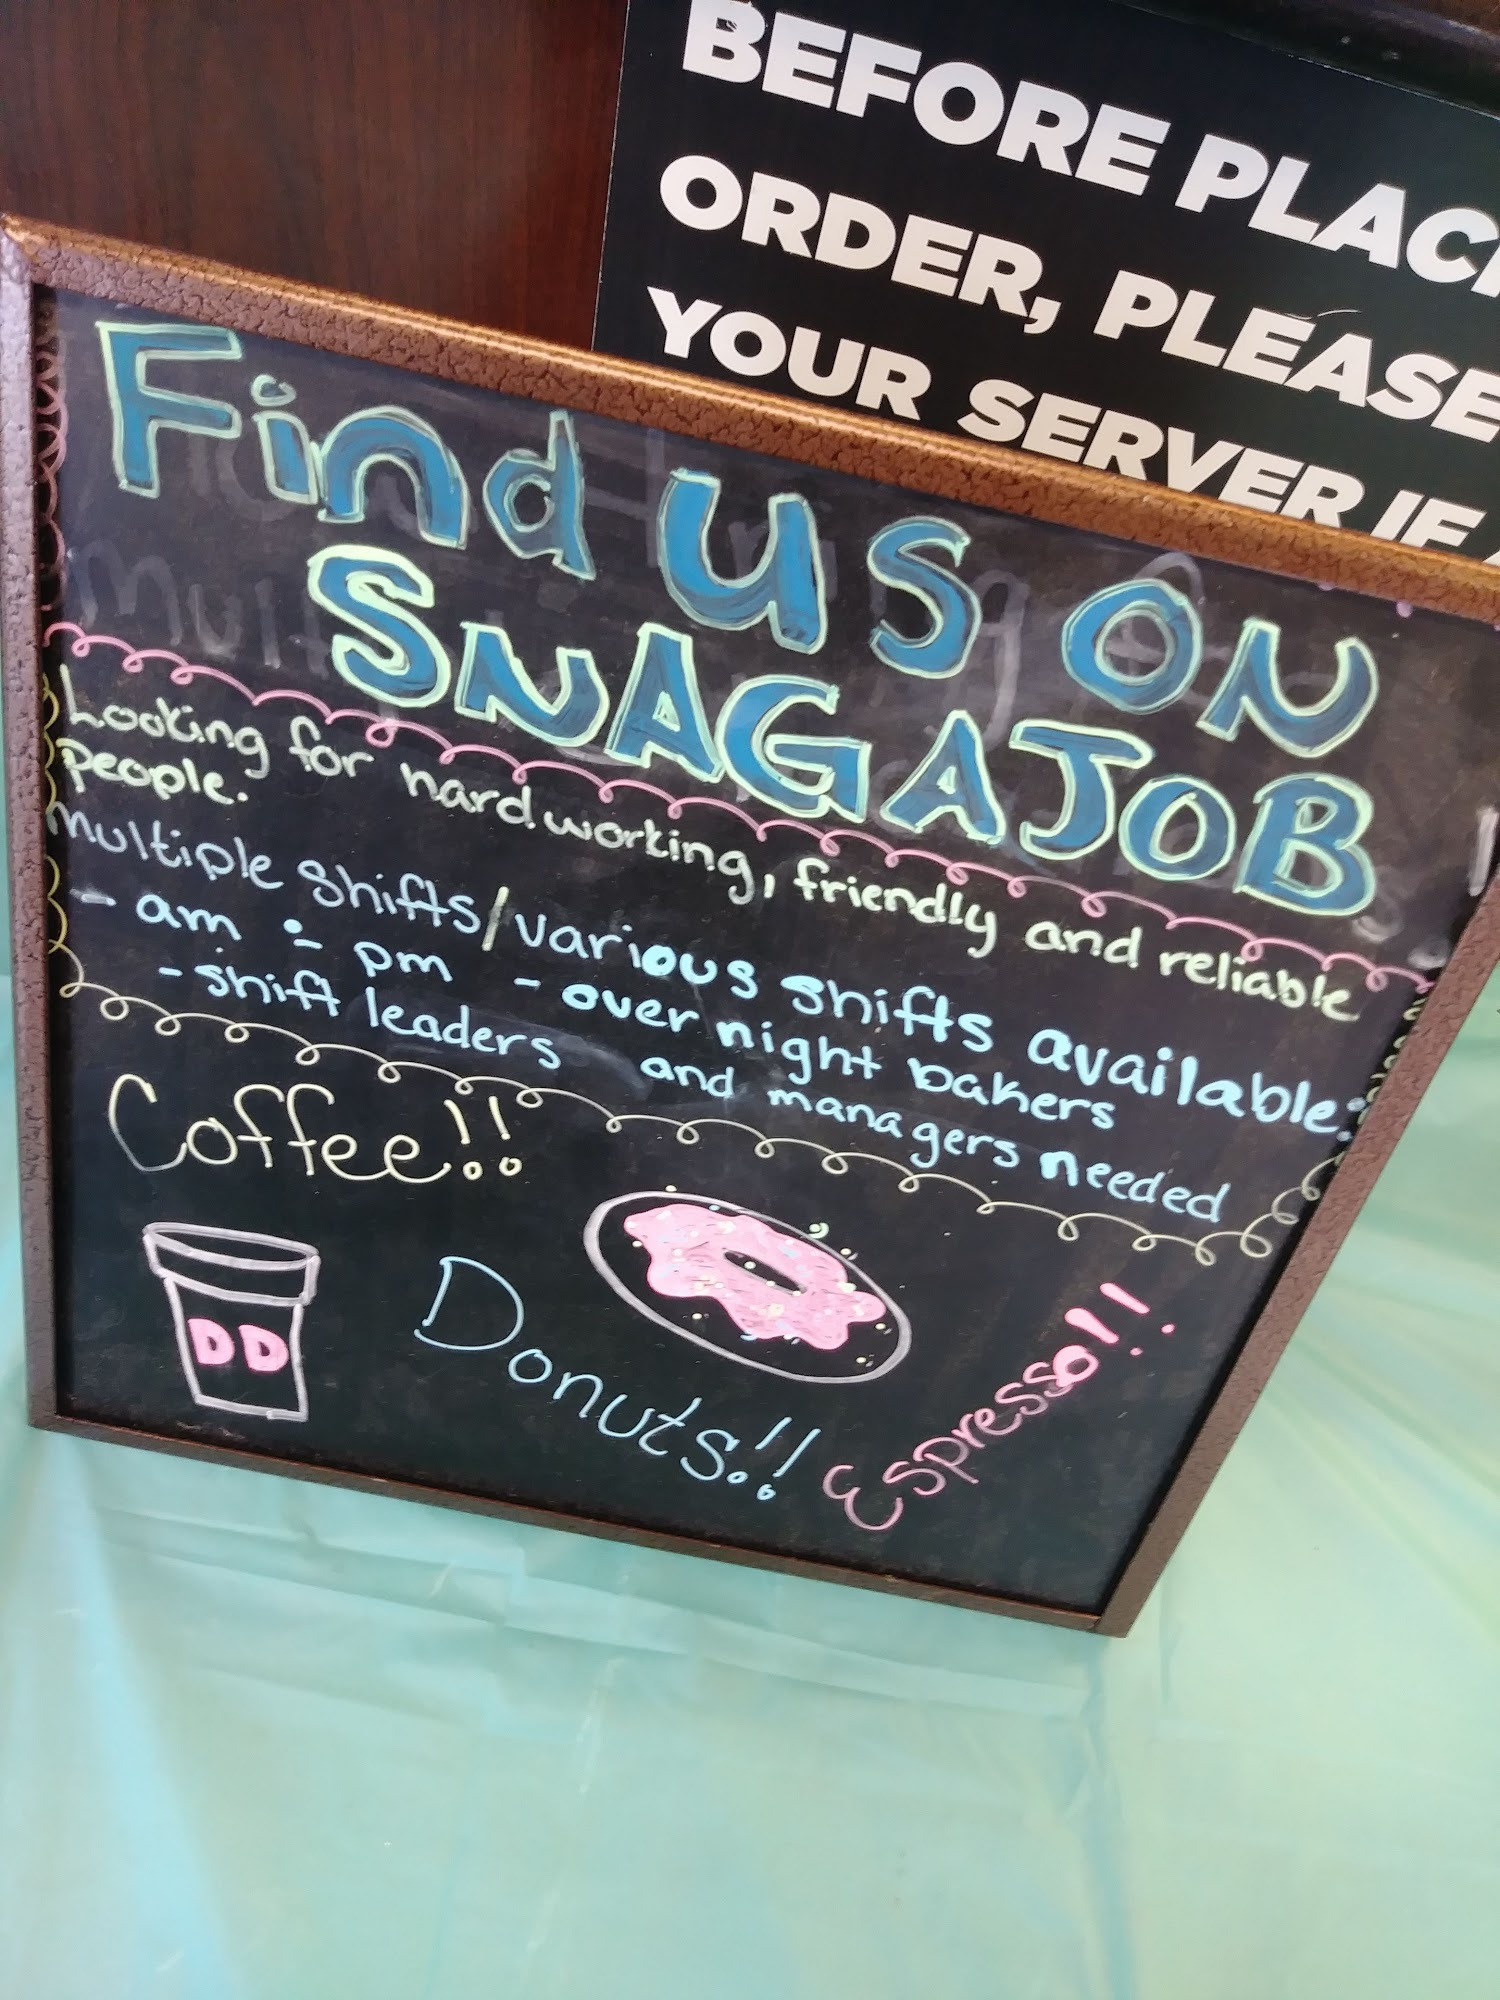 BEFORE
ORDER, PLEASE
YOUR SERVER IF
Find us ON
SNAGAJOB
Looking for hard working, friendly and reliable
people.
Multiple shifts/various shifts available:
- am - pm - over night bakers
- shift leaders and managers needed
Coffee!!
DD
Donuts!!
Espresso!!